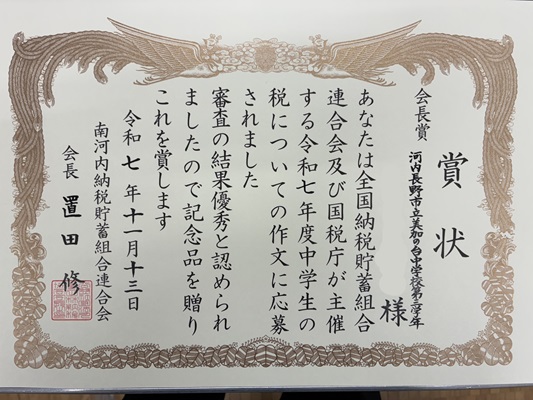 賞状
会長賞
河内長野市立美加の台中学校第三学年
様
あなたは全国納税貯蓄組合
連合会及び国税庁が主催
する令和七年度中学生の
税についての作文に応募
されました
審査の結果優秀と認められ
ましたので記念品を贈り
これを賞します
令和七年十一月十三日
南河内納税貯蓄組合連合会
会長 置田修